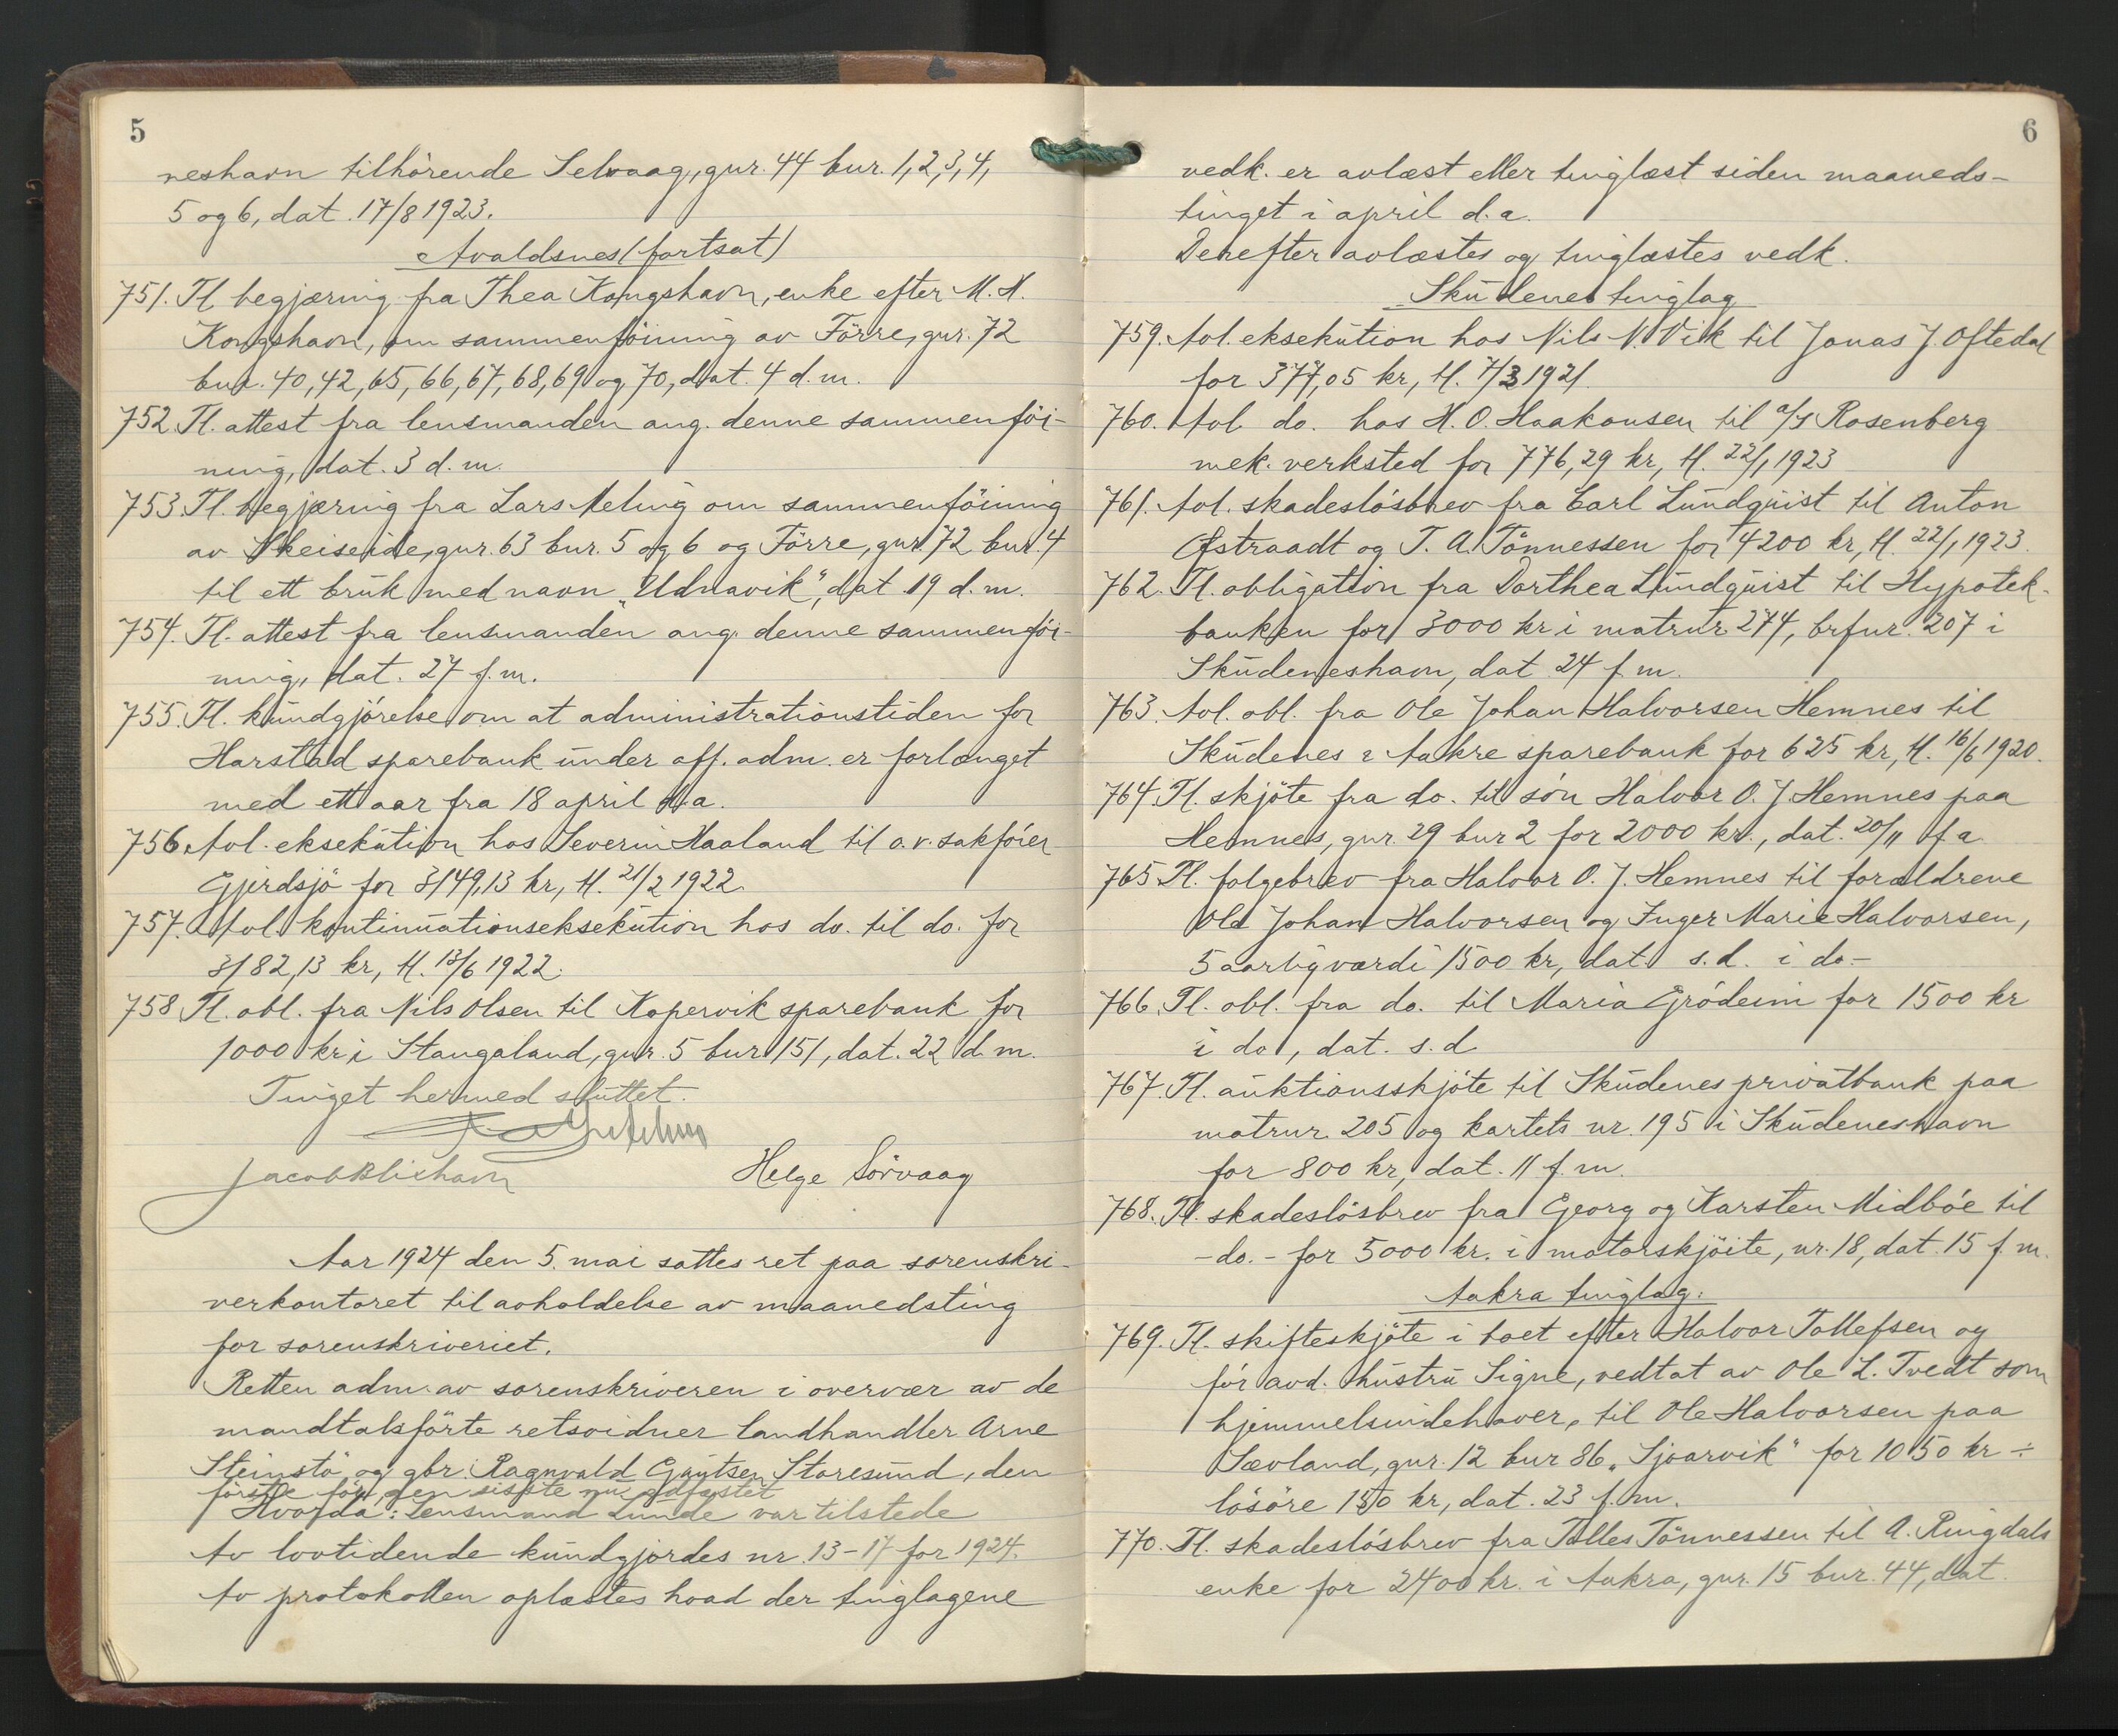 5
neshavn tilhörende Selvaag, gnr. 44 bnr. 1, 2, 3, 4,
5 og 6, dat. 17/8 1923.
Avaldsnes (fortsat)
751. Tl begjæring fra Thea Kongshavn, enke efter M. H.
Kongshavn, om sammenföining av Förre, gnr. 72
bnr. 40, 42, 65, 66, 67, 68, 69 og 70, dat. 4 d. m.
752. Tl. attest fra lensmanden ang. denne sammenföi-
ning, dat. 3 d. m.
753. Tl. begjæring fra Lars Meling om sammenföining
av Skeiseide, gnr. 63 bnr. 5 og 6 og Förre, gnr. 72 bnr. 4
til ett bruk med navn "Udnavik", dat 19 d. m.
754. Tl. attest fra lensmanden ang. denne sammenföi-
ning, dat. 27 f. m.
755. Tl. kundgjörelse om at administrationstiden for
Harstad sparebank under off. adm. er forlænget
med ett aar fra 18 april d. a.
756. Avl. eksekution hos Severin Haaland til o.r. sakförer
Gjerdsjö for 3149,13 kr, tl. 21/2 1922.
757. Avl. kontinuationseksekution hos do. til do. for
3182,13 kr, tl. 13/6 1922.
758 Tl. obl. fra Nils Olsen til Kopervik sparebank for
1000 kr i Stangaland, gnr. 5 bnr 151, dat. 22 d. m.
Tinget hermed sluttet.
Jacob Blixhavn Helge Sörvaag
Aar 1924 den 5. mai sattes ret paa sorenskri-
verkontoret til avholdelse av maanedsting
for sorenskriveriet.
Retten adm. av sorenskriveren i overvær av de
mandtalsförte retsvidner landhandler Arne
Steinstö og gbr. Ragnvald Gautsen Storesund, den
förste för, den sisste nu edfæstet
Hvorda: Lensmand Lunde var tilstede
Av lovtidende kundgjordes nr. 13-17 for 1924.
Av protokollen oplæstes hvad der tinglagene
6
vedk. er avlæst eller tinglæst siden maaneds-
tinget i april d. a.
Derefter avlæstes og tinglæstes vedk.
Skudenes tinglag
759. Avl. eksekution hos Nils N. Vik til Jonas J. Oftedal
for 377,05 kr, tl. 7/3 1921.
760. Avl. do. hos H. O. Haakonsen til a/s Rosenberg
mek. verksted for 776,29 kr, tl. 22/1 1923
761. Avl. skadeslösbrev fra Carl Lundquist til Anton
Østraadt og T. A. Tönnessen for 4200 kr, tl. 22/1 1923.
762. Tl. obligation fra Dorthea Lundquist til Hypotek-
banken for 3000 kr i matrnr 274, brfnr. 207 i
Skudeneshavn, dat 24 f. m.
763. Avl. obl. fra Ole Johan Halvorsen Hemnes til
Skudenes & Aakre sparebank for 625 kr, tl. 16/6 1920.
764. Tl. skjöte fra do. til sön Halvor O. J. Hemnes paa
Hemnes, gnr. 29 bnr 2 for 2000 kr., dat. 20/11 f. a.
765 Tl. folgebrev fra Halvor O. J. Hemnes til forældrene
Ole Johan Halvorsen og Inger Marie Halvorsen,
5 aarlig værdi 1500 kr, dat. s. d. i do-
766. Tl. obl. fra do. til Maria Grödeim for 1500 kr
i do, dat. s. d
767. Tl. auktionsskjöte til Skudenes privatbank paa
matrnr. 205 og kartets nr. 195 i Skudeneshavn
for 800 kr, dat. 11 f. m.
768. Tl. skadeslösbrev fra Georg og Karsten Midböe til
- do. - for 5000 kr. i motorskjöite, nr. 18, dat. 15 f. m.
Aakra tinglag:
769. Tl. skifteskjöte i boet efter Halvor Tollefsen og
för avd. hustru Signe, vedtat av Ole L. Tvedt som
hjemmelsindehaver, til Ole Halvorsen paa
Sævland, gnr. 12 bnr 86 "Sjoarvik" for 1050 kr ÷
lösöre 150 kr, dat. 23 f. m.
770. Tl. skadeslösbrev fra Tolles Tönnessen til A. Ringdals
enke for 2400 kr. i Aakra, gnr. 15 bnr. 44, dat.